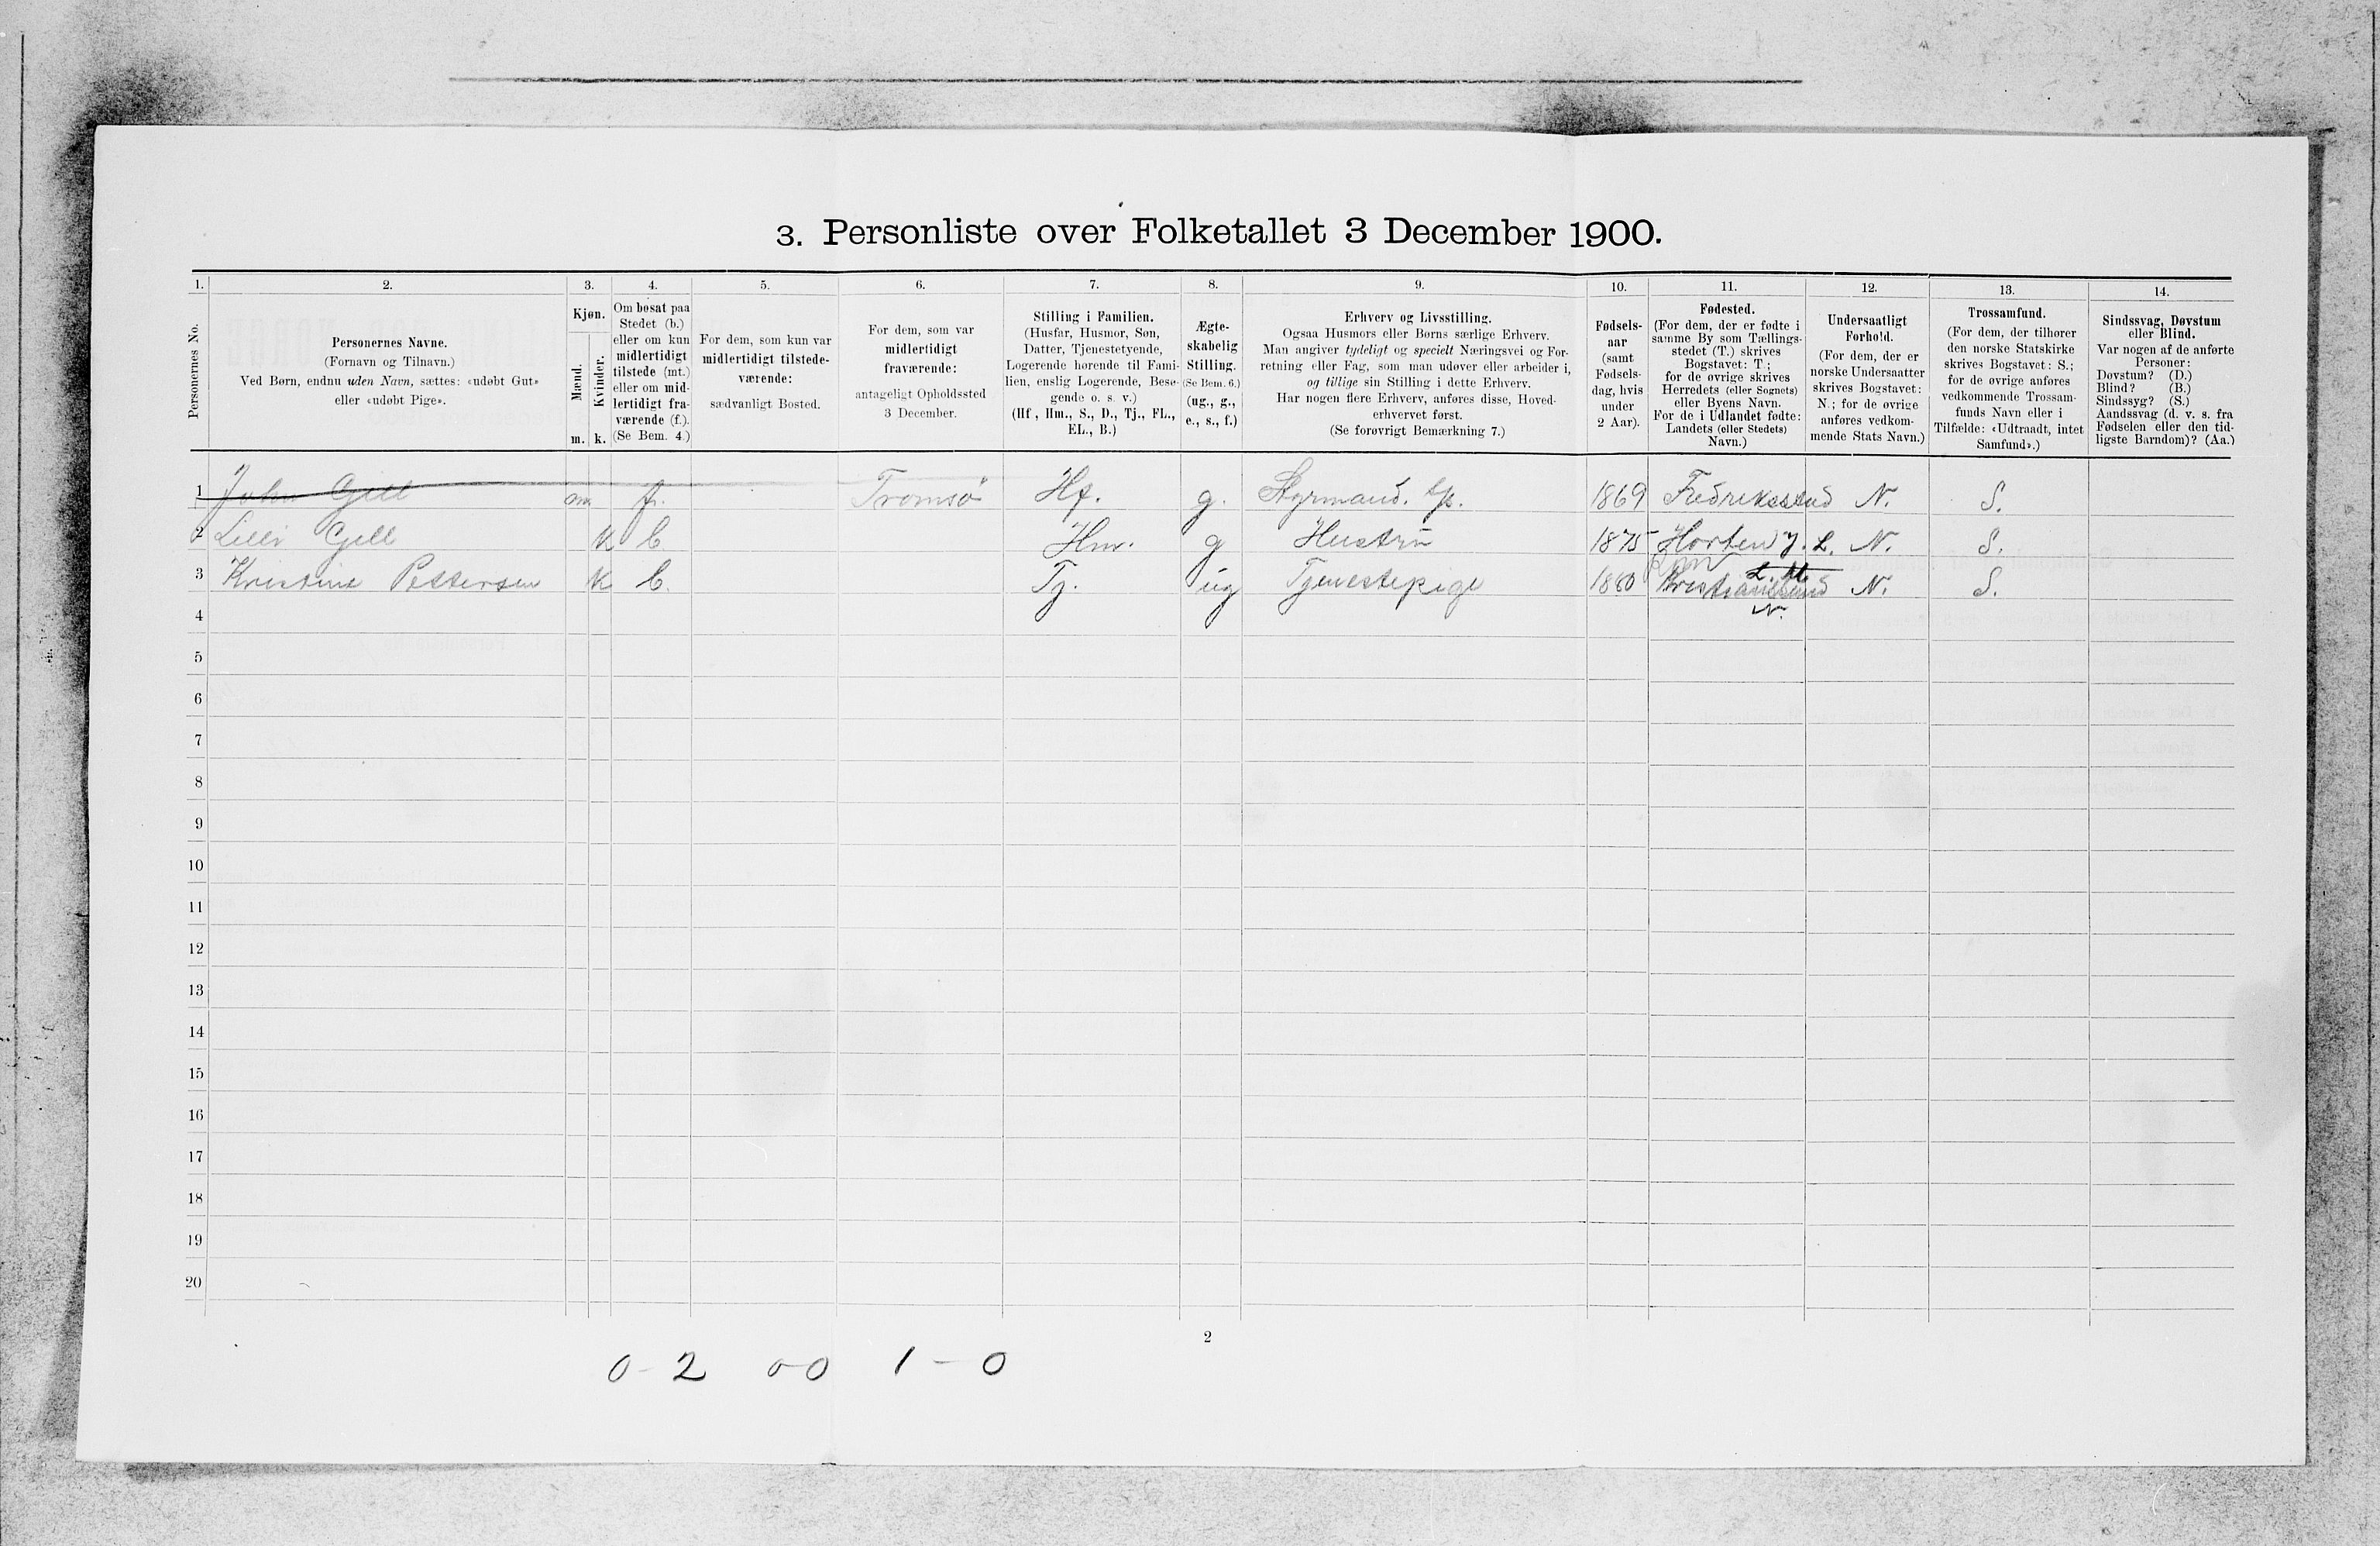 3. Personliste over Folketallet 3 December 1900.
1. 2. 3. 4. 5. 6. 7. 8. 9. 10. 11. 12. 13. 14.
Personernes No.
Personernes Navne.
(Fornavn og Tilnavn.)
Ved Børn, endnu uden Navn, sættes: «udøbt Gut»
eller «udøbt Pige».
Kjøn.
Mænd.
Kvinder.
m. k.
Om bosat paa
Stedet (b.)
eller om kun
midlertidigt
tilstede (mt.)
eller om mid-
lertidigt fra-
værende (f.).
(Se Bem. 4.)
For dem, som kun var
midlertidigt tilstede-
værende:
sædvanligt Bosted.
For dem, som var
midlertidigt
fraværende:
antageligt Opholdssted
3 December.
Stilling i Familien.
(Husfar, Husmor, Søn,
Datter, Tjenestetyende,
Logerende hørende til Fami-
lien, enslig Logerende, Besø-
gende o. s. v.)
(Hf., Hm., S., D., Tj., FL.,
EL., B.)
Ægte-
skabelig
Stilling.
(Se Bem. 6.)
(ug., g.,
e., s., f.)
Erhverv og Livsstilling.
Ogsaa Husmors eller Børns særlige Erhverv.
Man angiver tydeligt og specielt Næringsvei og For-
retning eller Fag, som man udøver eller arbeider i,
og tillige sin Stilling i dette Erhverv.
Har nogen flere Erhverv, anføres disse, Hoved-
erhvervet først.
(Se forøvrigt Bemærkning 7.)
Fødsels-
aar
(samt
Fødsels-
dag, hvis
under
2 Aar).
Fødested.
(For dem, der er fødte i
samme By som Tællings-
stedet (T.) skrives
Bogstavet: T.;
for de øvrige skrives
Herredets (eller Sognets)
eller Byens Navn.
For de i Udlandet fødte:
Landets (eller Stedets)
Navn.)
Undersaatligt
Forhold.
(For dem, der er
norske Undersaatter
skrives Bogstavet:
N.; for de øvrige
anføres vedkom-
mende Stats Navn.)
Trossamfund.
(For dem, der tilhører
den norske Statskirke
skrives Bogstavet: S.;
for de øvrige anføres
vedkommende Trossam-
funds Navn eller i
Tilfælde: «Udtraadt, intet
Samfund».)
Sindssvag, Døvstum
eller Blind.
Var nogen af de anførte
Personer:
Døvstum? (D.)
Blind? (B.)
Sindssyg? (S.)
Aandssvag (d. v. s. fra
Fødselen eller den tid-
ligste Barndom)? (Aa.)
1 John Gjell m f. Tromsø Hf. g. Styrmand. 1869 Fredriksstad N. S.
2 Lilli Gjell k b Hm. g Hustru 1875 Horten N. S.
3 Kristine Pettersen k b. Tj. ug Tjenestepige 1880 Kristianssund N. S.
N.
4
5
6
7
8
9
10
11
12
13
14
15
16
17
18
19
20
2
0-2 0-0 1-0